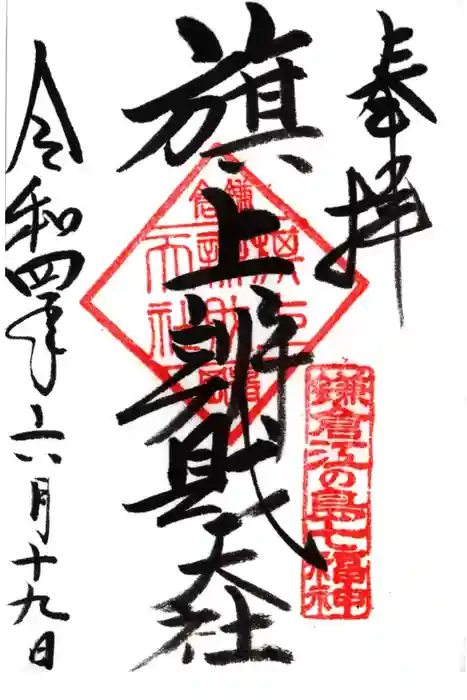 奉拝
鎌倉江の島七福神
旗上辨財天社
令和四年六月十九日